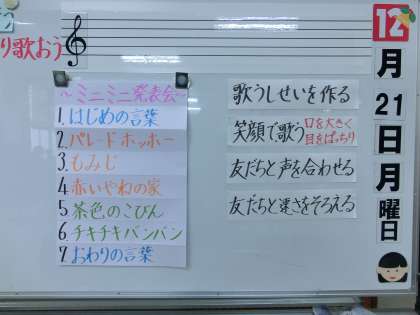 り歌おう
~ミニミニ発表会~
1.はじめの言葉
2.パレードホッホー
3.もみじ
4.赤いやねの家
5.茶色のこびん
6.チキチキバンバン
7.おわりの言葉
歌うしせいを作る
笑顔で歌う 口を大きく
目をぱっちり
友だちと声を合わせる
友だちと速さをそろえる
12
月
21
日
月
曜
日